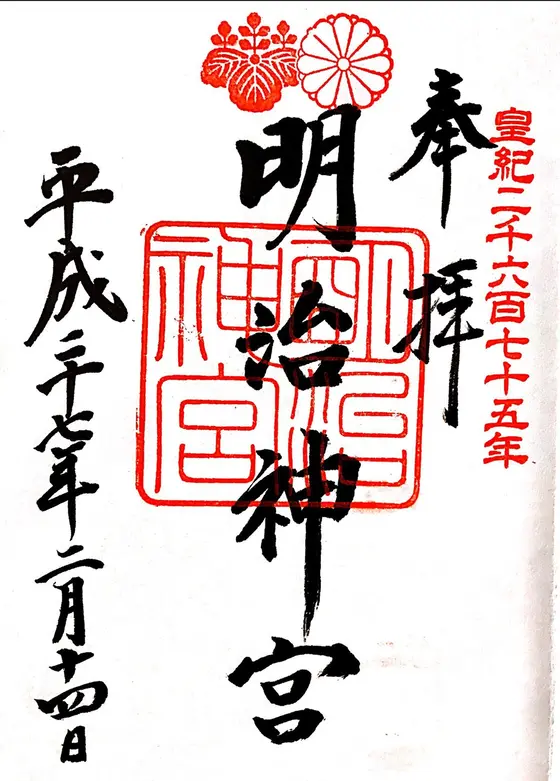 皇紀二千六百七十五年
奉拝
明治神宮
明治神宮
平成二十七年二月十四日